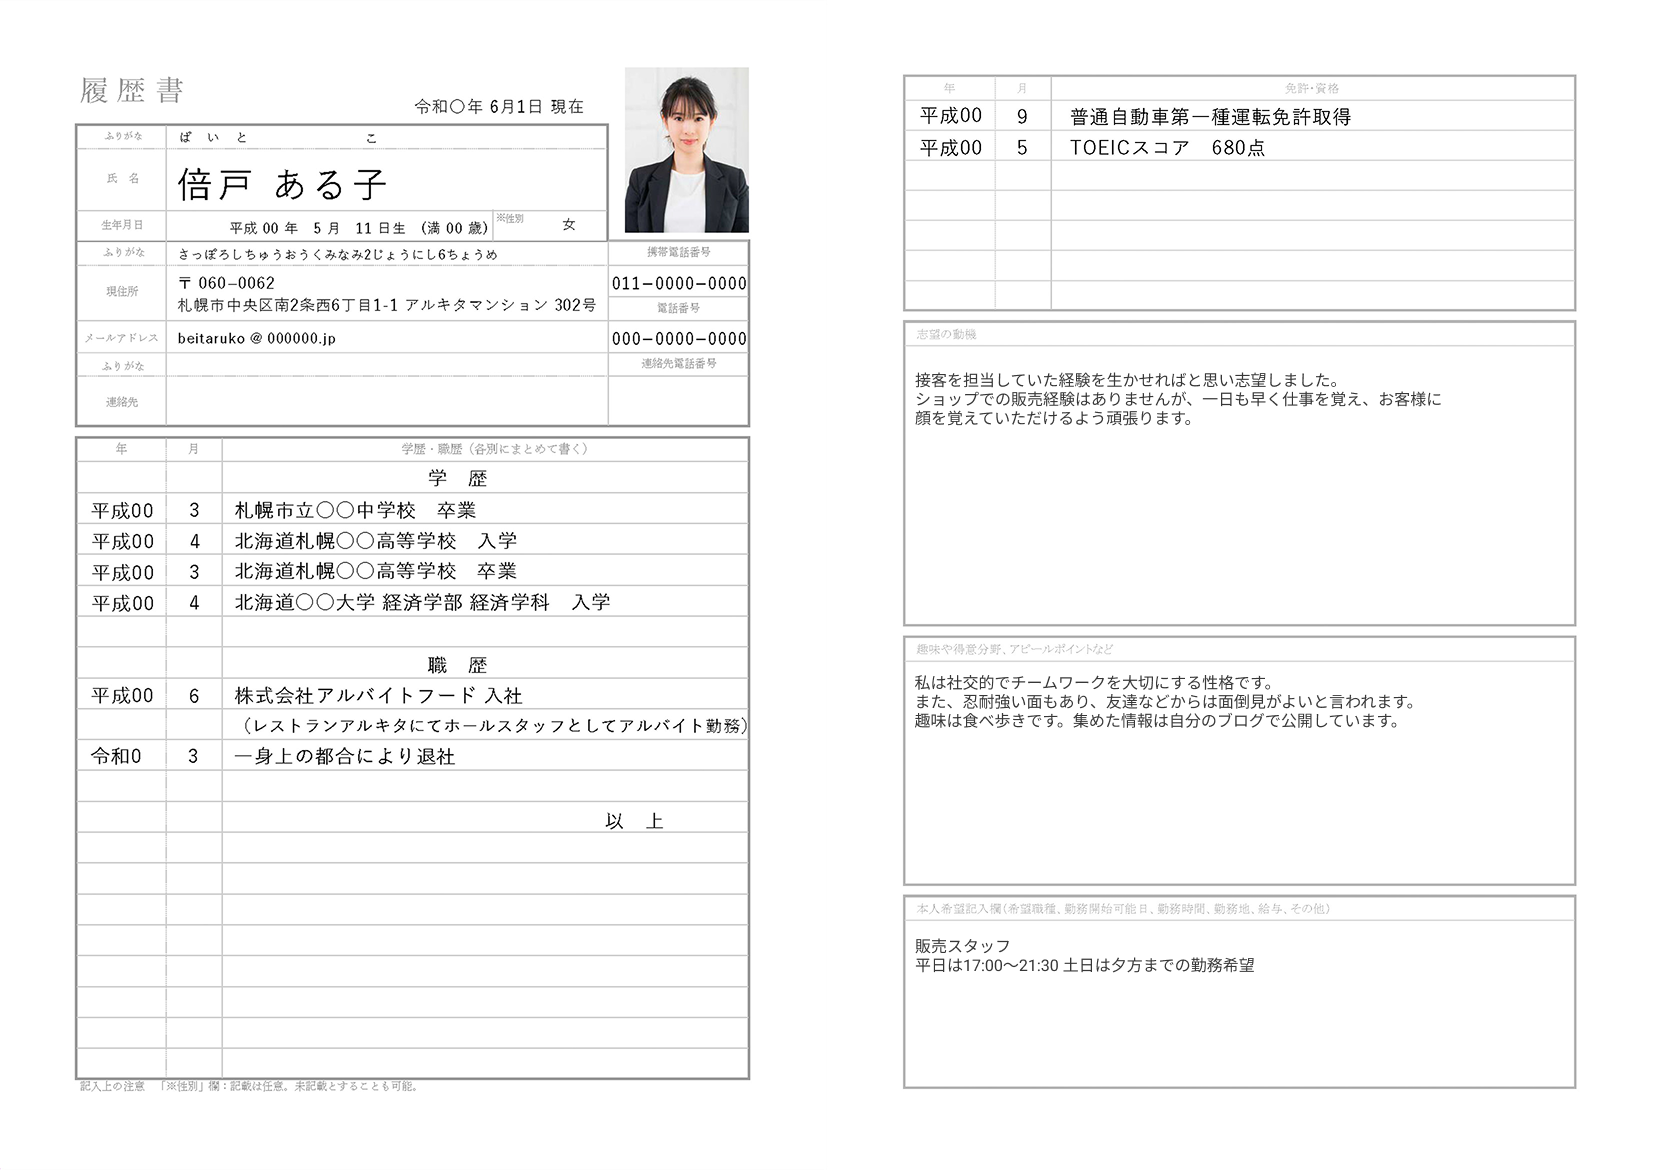 履歴書
令和〇年 6月1日 現在
ふりがな ばいと こ
氏 名 倍戸 ある子
生年月日 平成 00 年 5 月 11 日生 (満 00 歳) ※性別 女
ふりがな さっぽろしちゅうおうくみなみ2じょうにし6ちょうめ 携帯電話番号
現住所 〒 060–0062 011−0000−0000
札幌市中央区南2条西6丁目1-1 アルキタマンション 302号 電話番号
メールアドレス beitaruko @ 000000.jp 000−0000−0000
ふりがな 連絡先電話番号
連絡先
年 月 学歴・職歴（各別にまとめて書く）
学 歴
平成00 3 札幌市立〇〇中学校 卒業
平成00 4 北海道札幌〇〇高等学校 入学
平成00 3 北海道札幌〇〇高等学校 卒業
平成00 4 北海道〇〇大学 経済学部 経済学科 入学
職 歴
平成00 6 株式会社アルバイトフード 入社
（レストランアルキタにてホールスタッフとしてアルバイト勤務）
令和0 3 一身上の都合により退社
以 上
記入上の注意 「※性別」欄：記載は任意。未記載とすることも可能。
年 月 免許・資格
平成00 9 普通自動車第一種運転免許取得
平成00 5 TOEICスコア 680点
志望の動機
接客を担当していた経験を生かせればと思い志望しました。
ショップでの販売経験はありませんが、一日も早く仕事を覚え、お客様に
顔を覚えていただけるよう頑張ります。
趣味や得意分野、アピールポイントなど
私は社交的でチームワークを大切にする性格です。
また、忍耐強い面もあり、友達などからは面倒見がよいと言われます。
趣味は食べ歩きです。集めた情報は自分のブログで公開しています。
本人希望記入欄（希望職種、勤務開始可能日、勤務時間、勤務地、給与、その他）
販売スタッフ
平日は17:00〜21:30 土日は夕方までの勤務希望